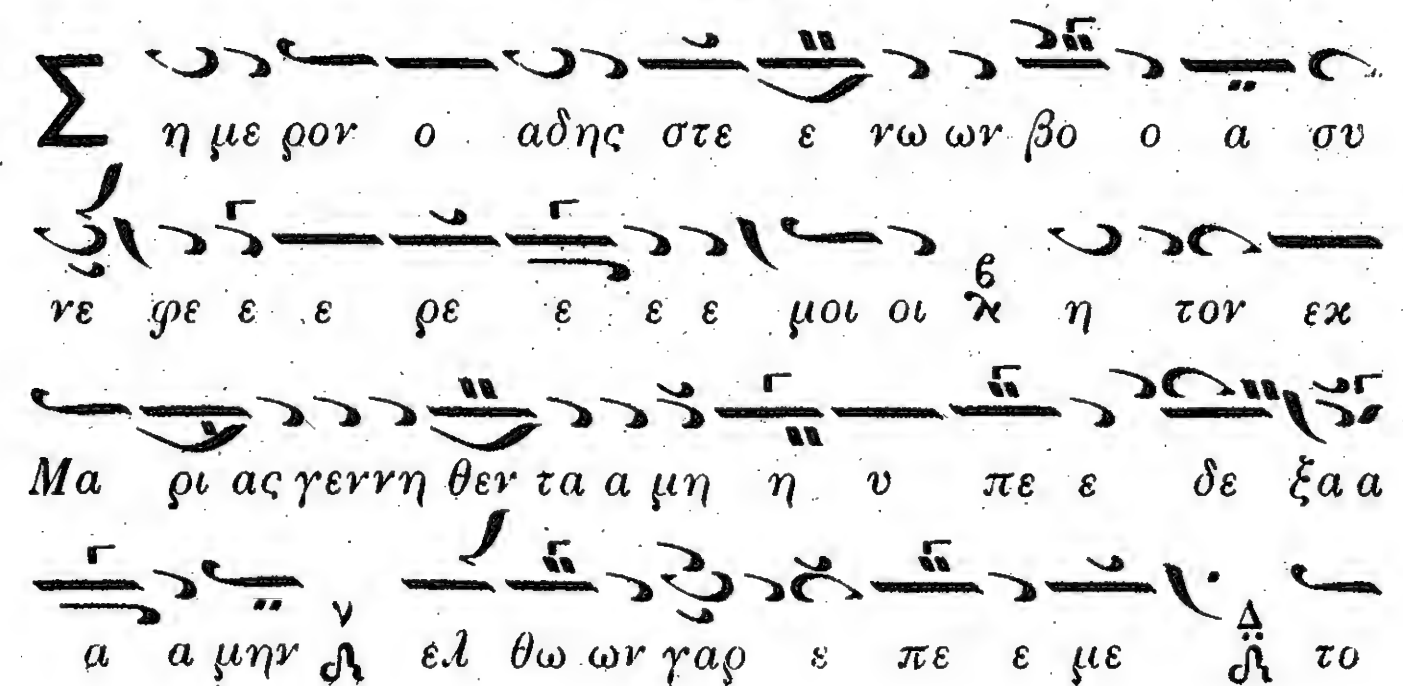 Σ η με ρον ο αδης στε ε νω ων βο ο α συ
νε φε ε ε ρε ε ε ε μοι οι β η τον εκ
Μα ρι ας γεννη θεν τα α μη η υ πε ε δε ξα α
α α μην ν ελ θω ων γαρ ε πε ε με Δ το